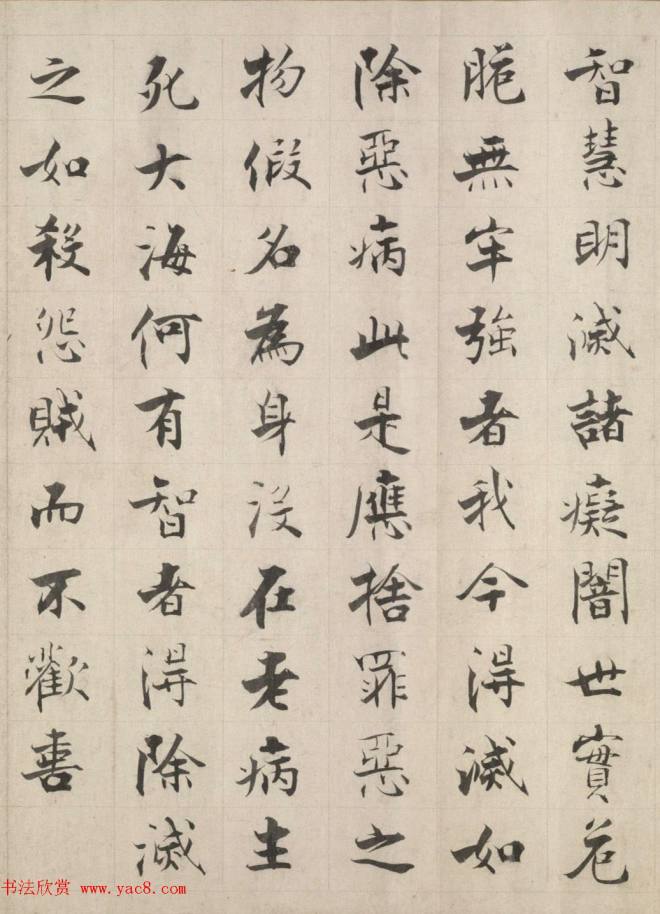 智慧明滅諸癡闇世實危
脆無牢強者我今得滅如
除惡病此是應捨罪惡之
物假名為身沒在老病生
死大海何有智者得除滅
之如殺怨賊而不歡喜
书法欣赏 www.yac8.com